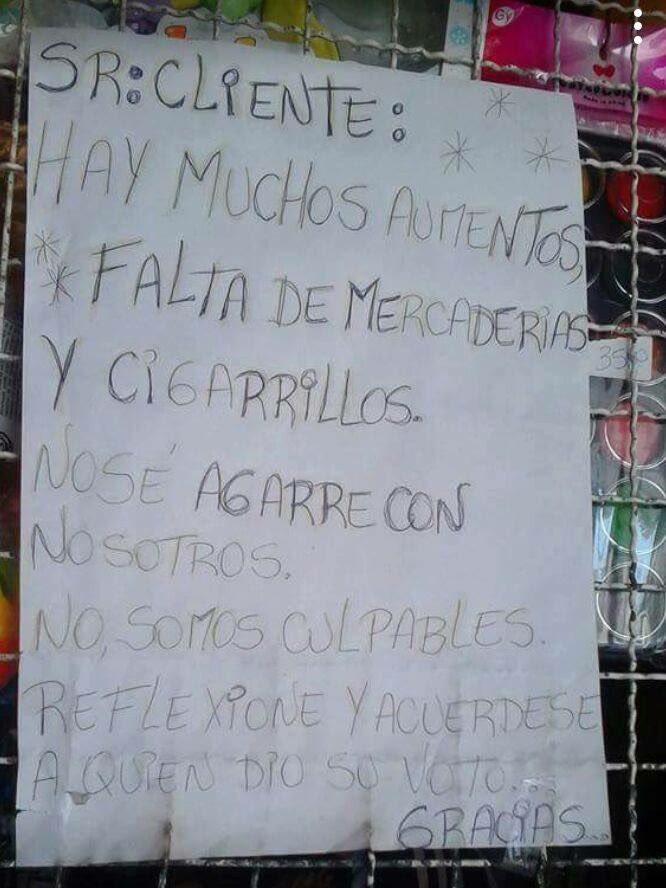 SR:CLIENTE:
HAY MUCHOS AUMENTOS,
* FALTA DE MERCADERIAS
Y CIGARRILLOS.
NOSÉ AGARRE CON
NOSOTROS.
NO, SOMOS CULPABLES.
REFLEXIONE Y ACUERDESE
A QUIEN DIO SU VOTO...
GRACIAS...